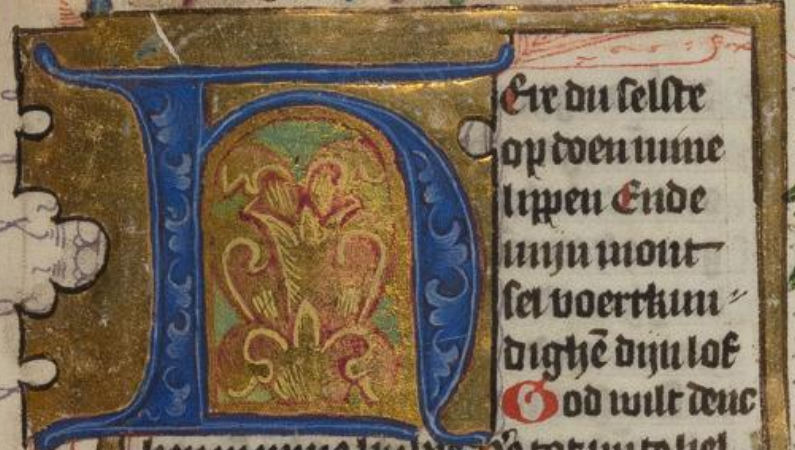 HEre du selste
op doen mine
lippen Ende
mijn mont
sel voertkun
dighē dijn lof
God wilt denc